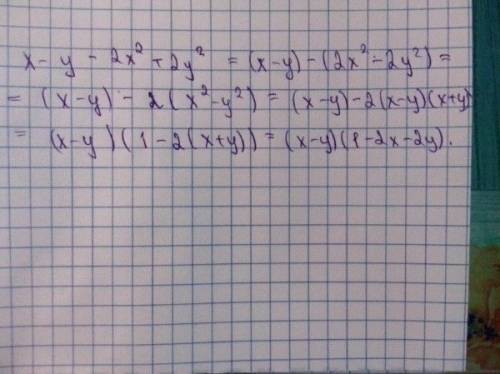 x - y - 2x² + 2y² = (x-y) - (2x² - 2y²) =
= (x-y) - 2(x² - y²) = (x-y) - 2(x-y)(x+y)
= (x-y)(1 - 2(x+y)) = (x-y)(1 - 2x - 2y).